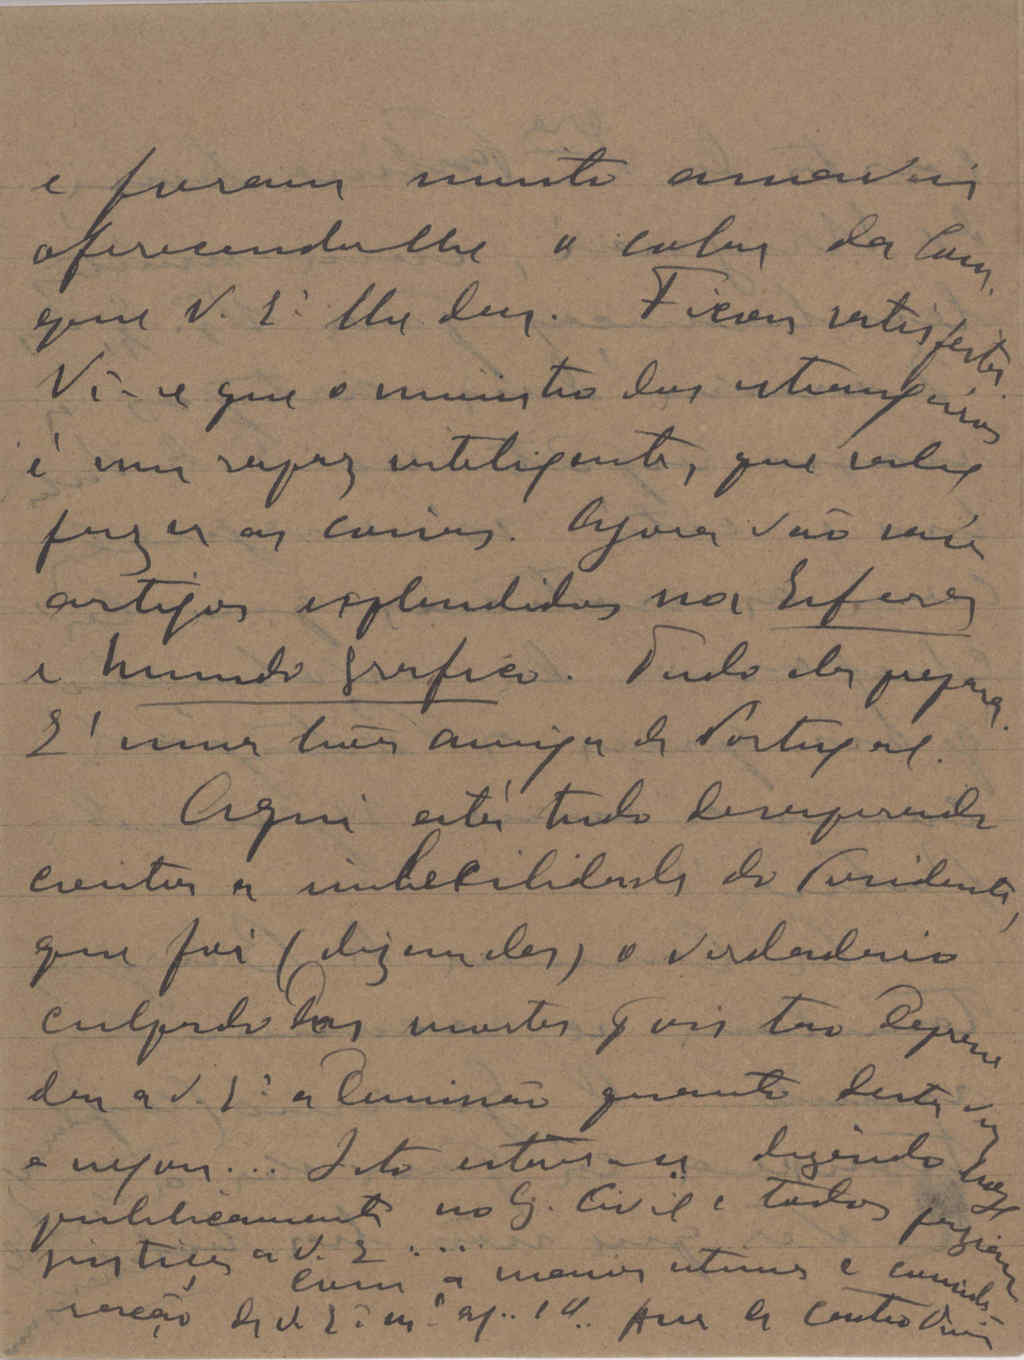 e foram muito amaveis
oferecendo-lhe a cabeça da Casa,
que V. Eª lhe deu. Ficou satisfeita
Vê-se que o ministro dos estrangeiros
é um rapaz inteligente, que sabe
fazer as coisas. Agora vão sair
artigos explendidos na Esfera
e Mundo grafico. Tudo ela prepara.
E' uma bôa amiga de Portugal.
Aqui está tudo desesperado
contra a imbecilidade do Presidente,
que foi (dizem eles) o verdadeiro
culpado das mortes pois tão depressa
deu a V. Eª a Demissão quanto desta vez
a negou... Isto estava-se dizendo hoje
publicamente no G. Civil e todos faziam
justiça a V. E....
Com a maior estima e conside-
ração de V. Eª mº